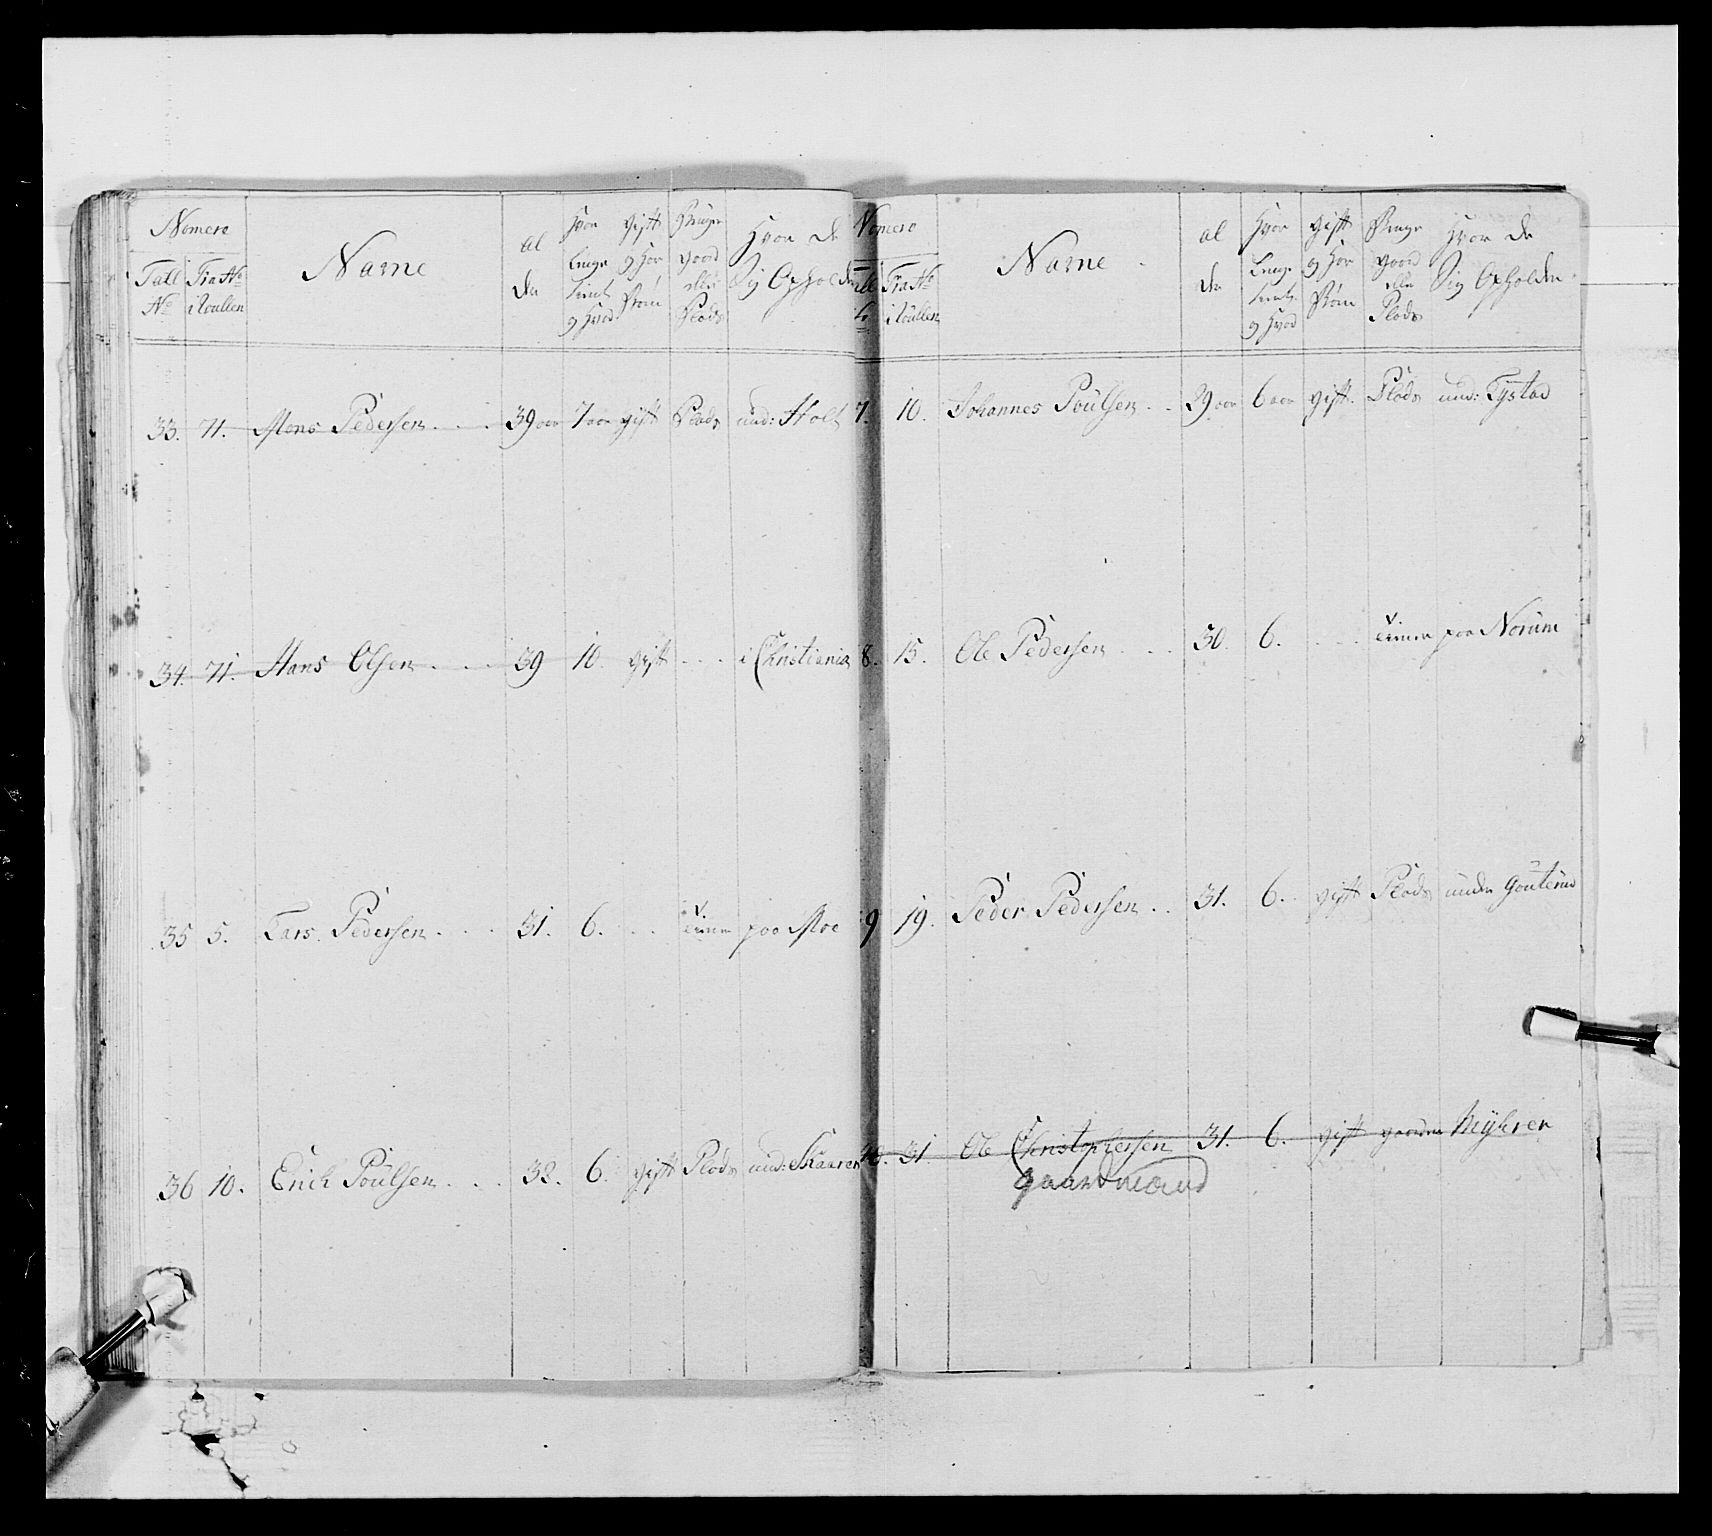 Nomero
Tall No
Fra No i Roullen
Name
al der
Hvor Længe tient og Hvad
gift og Hør Børn
Bruger gaard eller Plads
Hvor de Sig Opholder
33. 71. Mons Pedersen . . . 39 aar 7 aar gift Plads und: Holt
34. 71. Hans Olsen . . . 39 10. gift . . . i Christiania
35 5. Lars Pedersen . . . 31. 6. . . tiener paa Moe
36 10. Erich Poulsen . . . 32. 6. gift Plads und: Skaarer
Nomero
Fra No i Roullen
Name
al der
Hvor Længe tient og Hvad
gift og Hør Børn
Bruge gaard eller Plads
Hvor de Sig Opholder
7. 10. Johannes Poulsen . . 29 aar 6 aar gift. Plads und: Tystad
8. 15. Ole Pedersen . . . 30. 6. . . . tiener paa Norum
9 19. Peder Pedersen . . 31. 6. . gift Plads under
31. Ole Christophersen 31. 6. gift gaarden Myhrer
gaardmand